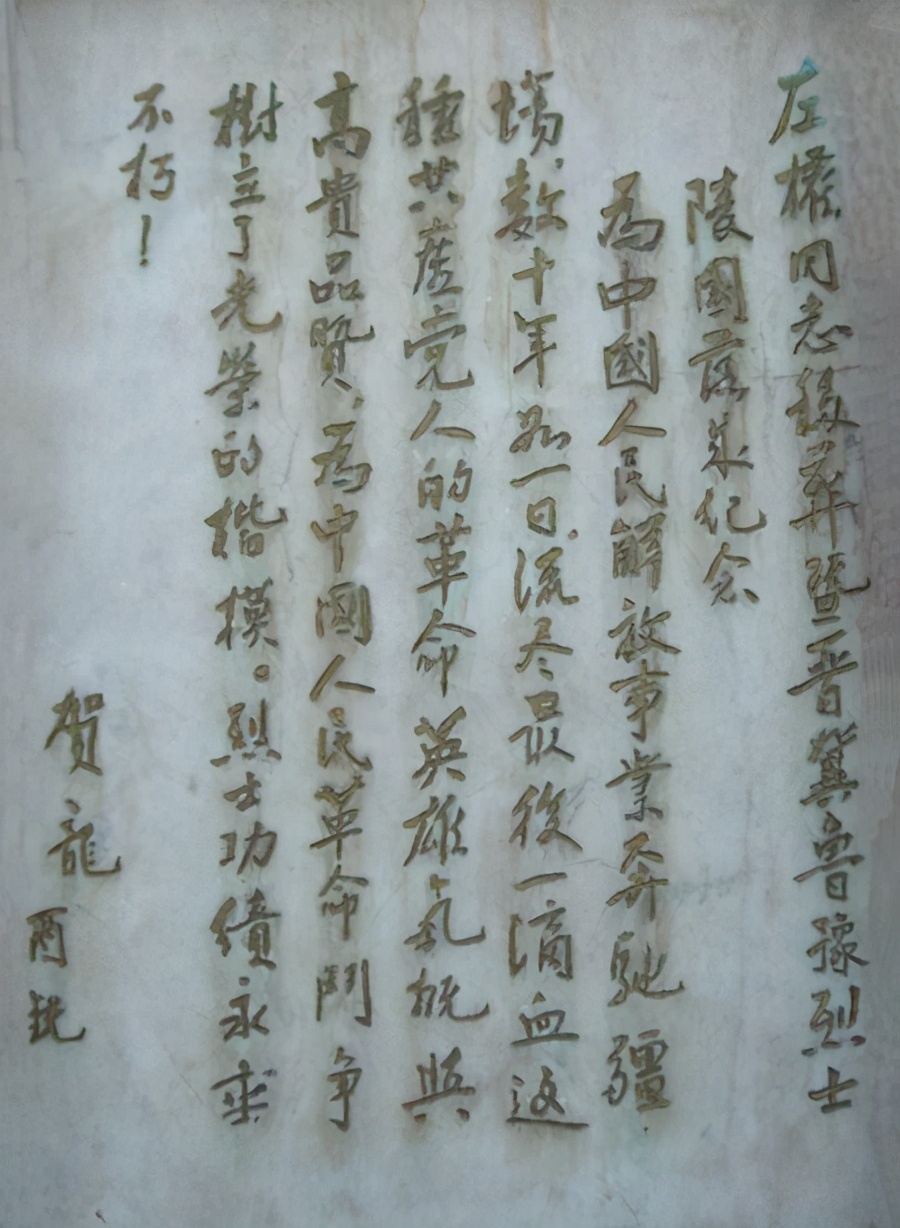 左權同志移葬暨晋冀魯豫烈士
陵園落成纪念
為中國人民解放事業奔馳疆
場，數十年如一日，流尽最後一滴血，这
種共産党人的革命英雄氣概與
高貴品質，為中國人民革命鬥争
樹立了光榮的楷模。烈士功績永垂
不朽！
贺龍